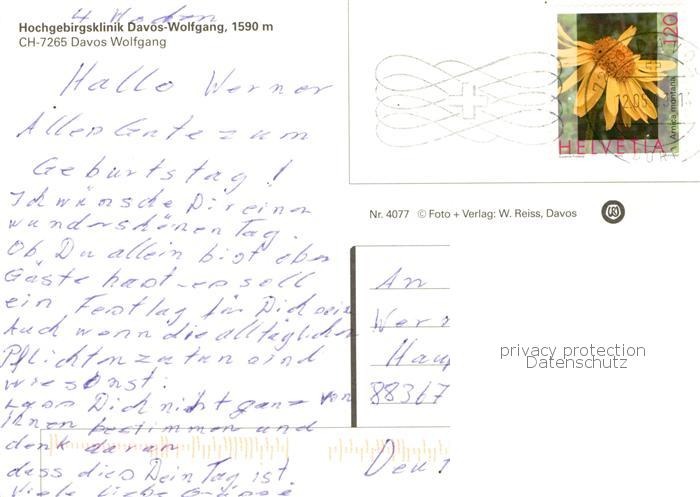 4 Wochen
Hochgebirgsklinik Davos-Wolfgang, 1590 m
CH-7265 Davos Wolfgang
Hallo Werner
Alles Gute zum
Geburtstag!
Ich wünsche Dir einen
wunderschönen Tag.
Ob Du allein bist oder
Gäste hast - es soll
ein Festtag für Dich sein
Auch wenn die alltäglichen
Pflichten zu tun sind
wie sonst.
Lass Dich nicht ganz von
ihnen bestimmen und
denk daran
dass dies Dein Tag ist.
Viele liebe Grüsse
120
Arnica montana
HELVETIA
Nr. 4077 © Foto + Verlag: W. Reiss, Davos
An
Wer
Hau
88367
Deu
privacy protection
Datenschutz